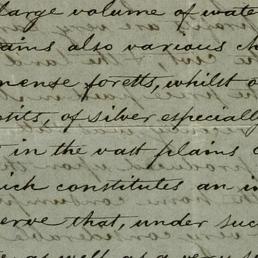 large volume of wate
ains also various ch
mense forests, whilst o
osits, of silver especially
t in the vast plains o
hich constitutes an in
serve that, under suc
as well as a very s